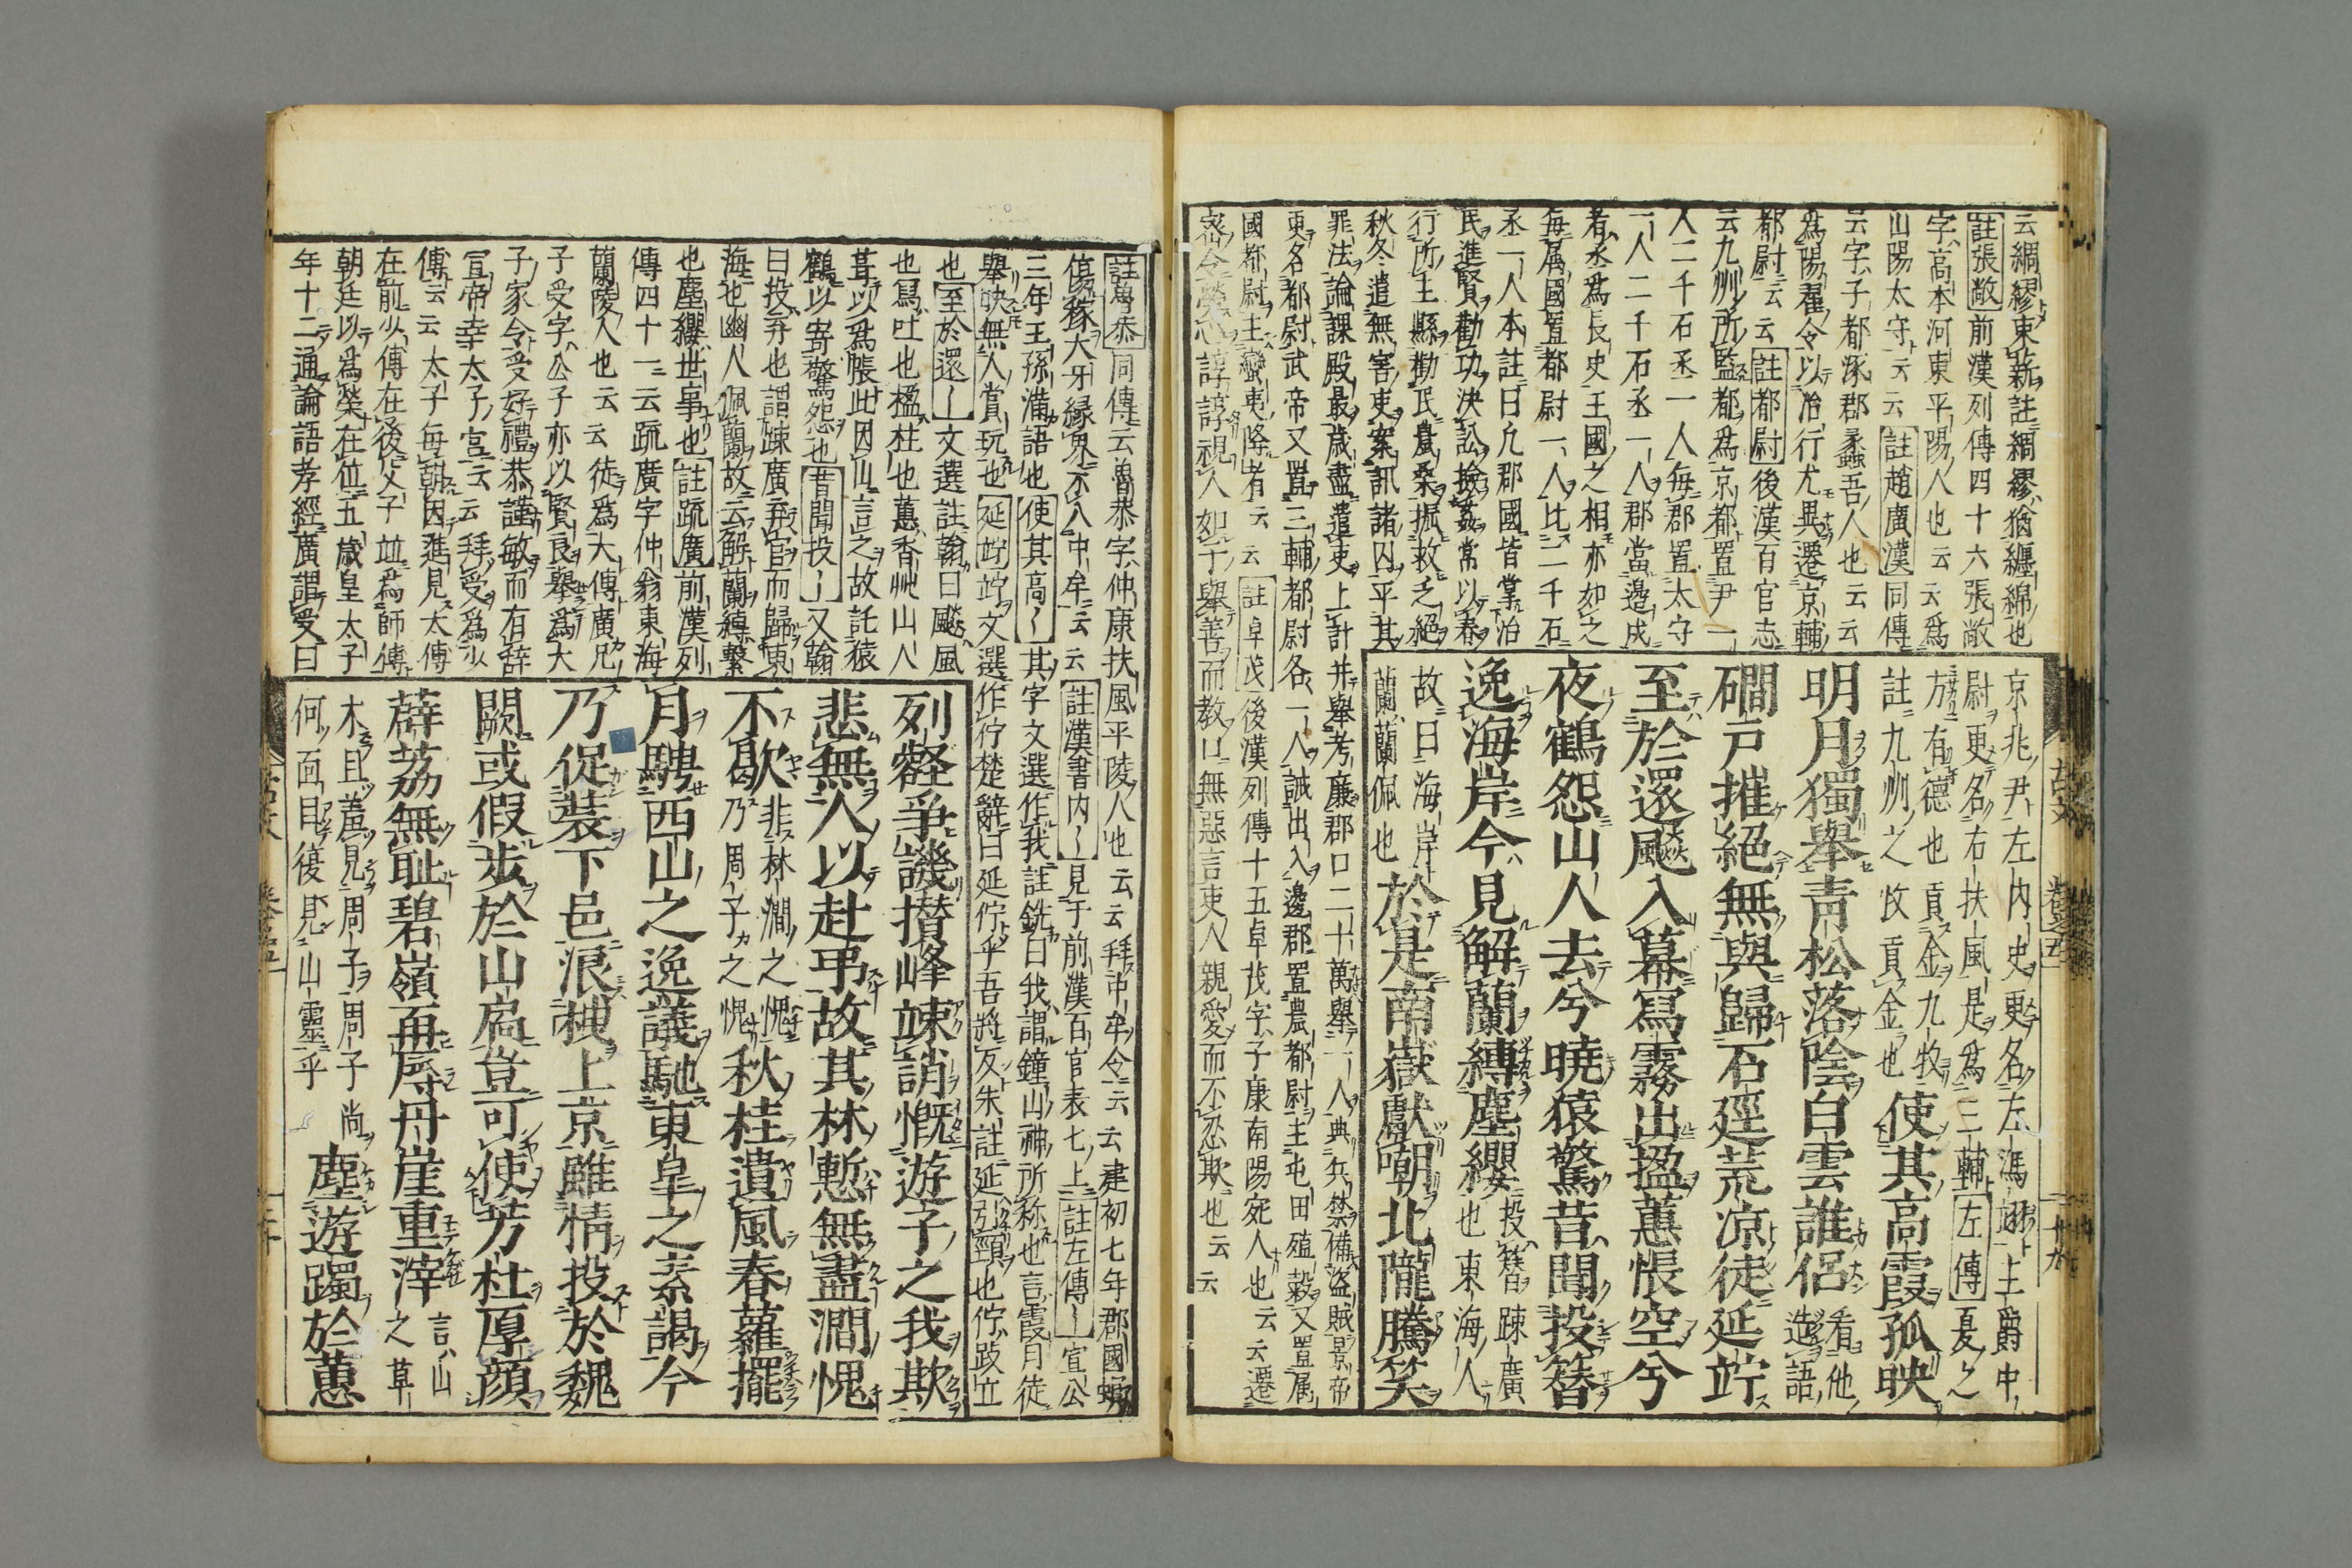 云綢繆束薪註綢繆猶纏綿也
註張敞前漢列傳四十六張敞
字高本河東平陽人也云云爲
山陽太守云云註趙廣漢同傳
云字子都涿郡蠡吾人也云云
爲陽翟令以治行尤異遷京輔
都尉云云註都尉後漢百官志
云九州所監都爲京都置尹一
人二千石丞一人每郡置太守
一人二千石丞一人郡當邊戍
者丞爲長史王國之相亦如之
每属國置都尉一人比二千石
丞一人本註曰凡郡國皆掌治
民進賢勸功決訟檢姦常以春
行所主縣勸民農桑振救乏絕
秋冬遣無害吏案訊諸囚平其
罪法論課殿最歲盡遣吏上計并舉孝廉郡口二十萬舉一人典兵禁備盜賊景帝
更名都尉武帝又置三輔都尉各一人誠出入邊郡置農都尉主屯田殖穀又置属
國都尉主蠻夷降者云云註卓茂後漢列傳十五卓茂字子康南陽宛人也云云遷
密令勞心諄諄視人如子舉善而教口無惡言吏人親愛而不忍欺也云云
京兆尹左内史更名左馮翊主爵中
尉更名右扶風是爲三輔左傳夏之
方有德也貢金九牧
註九州之牧貢金也
使其高霞孤映
明月獨舉青松落陰白雲誰侶看他造語
磵戸摧絕無與歸石逕荒凉徒延竚
至於還飈入幕寫霧出楹蕙帳空兮
夜鶴怨山人去兮曉猿驚昔聞投簪
逸海岸今見解蘭縛塵纓投簪疎廣也東海人
故曰海岸蘭蘭佩也於是南嶽獻嘲北隴騰笑
古文
卷之五
二十九
註魯恭同傳云魯恭字仲康扶風平陵人也云云拜中牟令云云建初七年郡國螟
傷稼犬牙緣界不入中牟云云註漢書内〻見于前漢百官表七上註左傳〻宣公
三年王孫滿語也使其高〻其字文選作我註銑曰我謂鐘山神所称也言霞月徒
舉映無人賞玩也延竚竚文選作佇楚辭曰延佇乎吾將反朱註延引頸也佇跂立
也至於還〻文選註翰曰飈風
也寫吐也楹柱也蕙香艸山人
葺以爲帳此因山言之故託猿
鶴以寄驚怨也昔聞投〻又翰
曰投弃也謂疎廣弃官而歸東
海也幽人佩蘭故云解蘭縛繫
也塵纓世事也註疏廣前漢列
傳四十一云疏廣字仲翁東海
蘭陵人也云云徒爲太傅廣兄
子受字公子亦以賢良舉爲太
子家令受好禮恭謹敏而有辞
宣帝幸太子宮云云拜受爲少
傅云云太子每朝因進見太傅
在前少傅在後父子竝爲師傅
朝廷以爲榮在位五歲皇太子
年十二通論語孝經廣謂受曰
列壑爭譏攅峰竦誚慨遊子之我欺
悲無人以赴弔故其林慙無盡澗愧
不歇非林澗之愧乃周子之愧秋桂遺風春蘿擺
月騁西山之逸議馳東皐之素謁今
乃促裝下邑浪栧上京雖情投於魏
闕或假步於山扃豈可使芳杜厚顔
薜荔無耻碧嶺再辱丹崖重滓言山之草
木且羞見周子周子尚
何面目復見山靈乎
塵遊躅於蕙